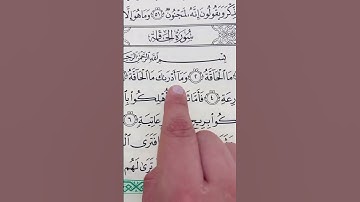 لِكْرَ وَيَقُولُونَ إِنَّهُ لَمَجْنُونٌ ٥١ وَمَا هُوَ إِلَّا
سُورَةُ الْحَاقَّةِ
بِسْمِ اللَّهِ الرَّحْمَٰنِ الرَّحِ
مَا الْحَاقَّةُ ٢ وَمَا أَدْرَىٰكَ مَا الْحَاقَّةُ
رِعَةِ ٤ فَأَمَّا أُهْلِكُوا بِا
كُوا بِرِيحٍ عَاتِيَةٍ ٦
فَتَرَى الْ
تَرَىٰ لَهُم